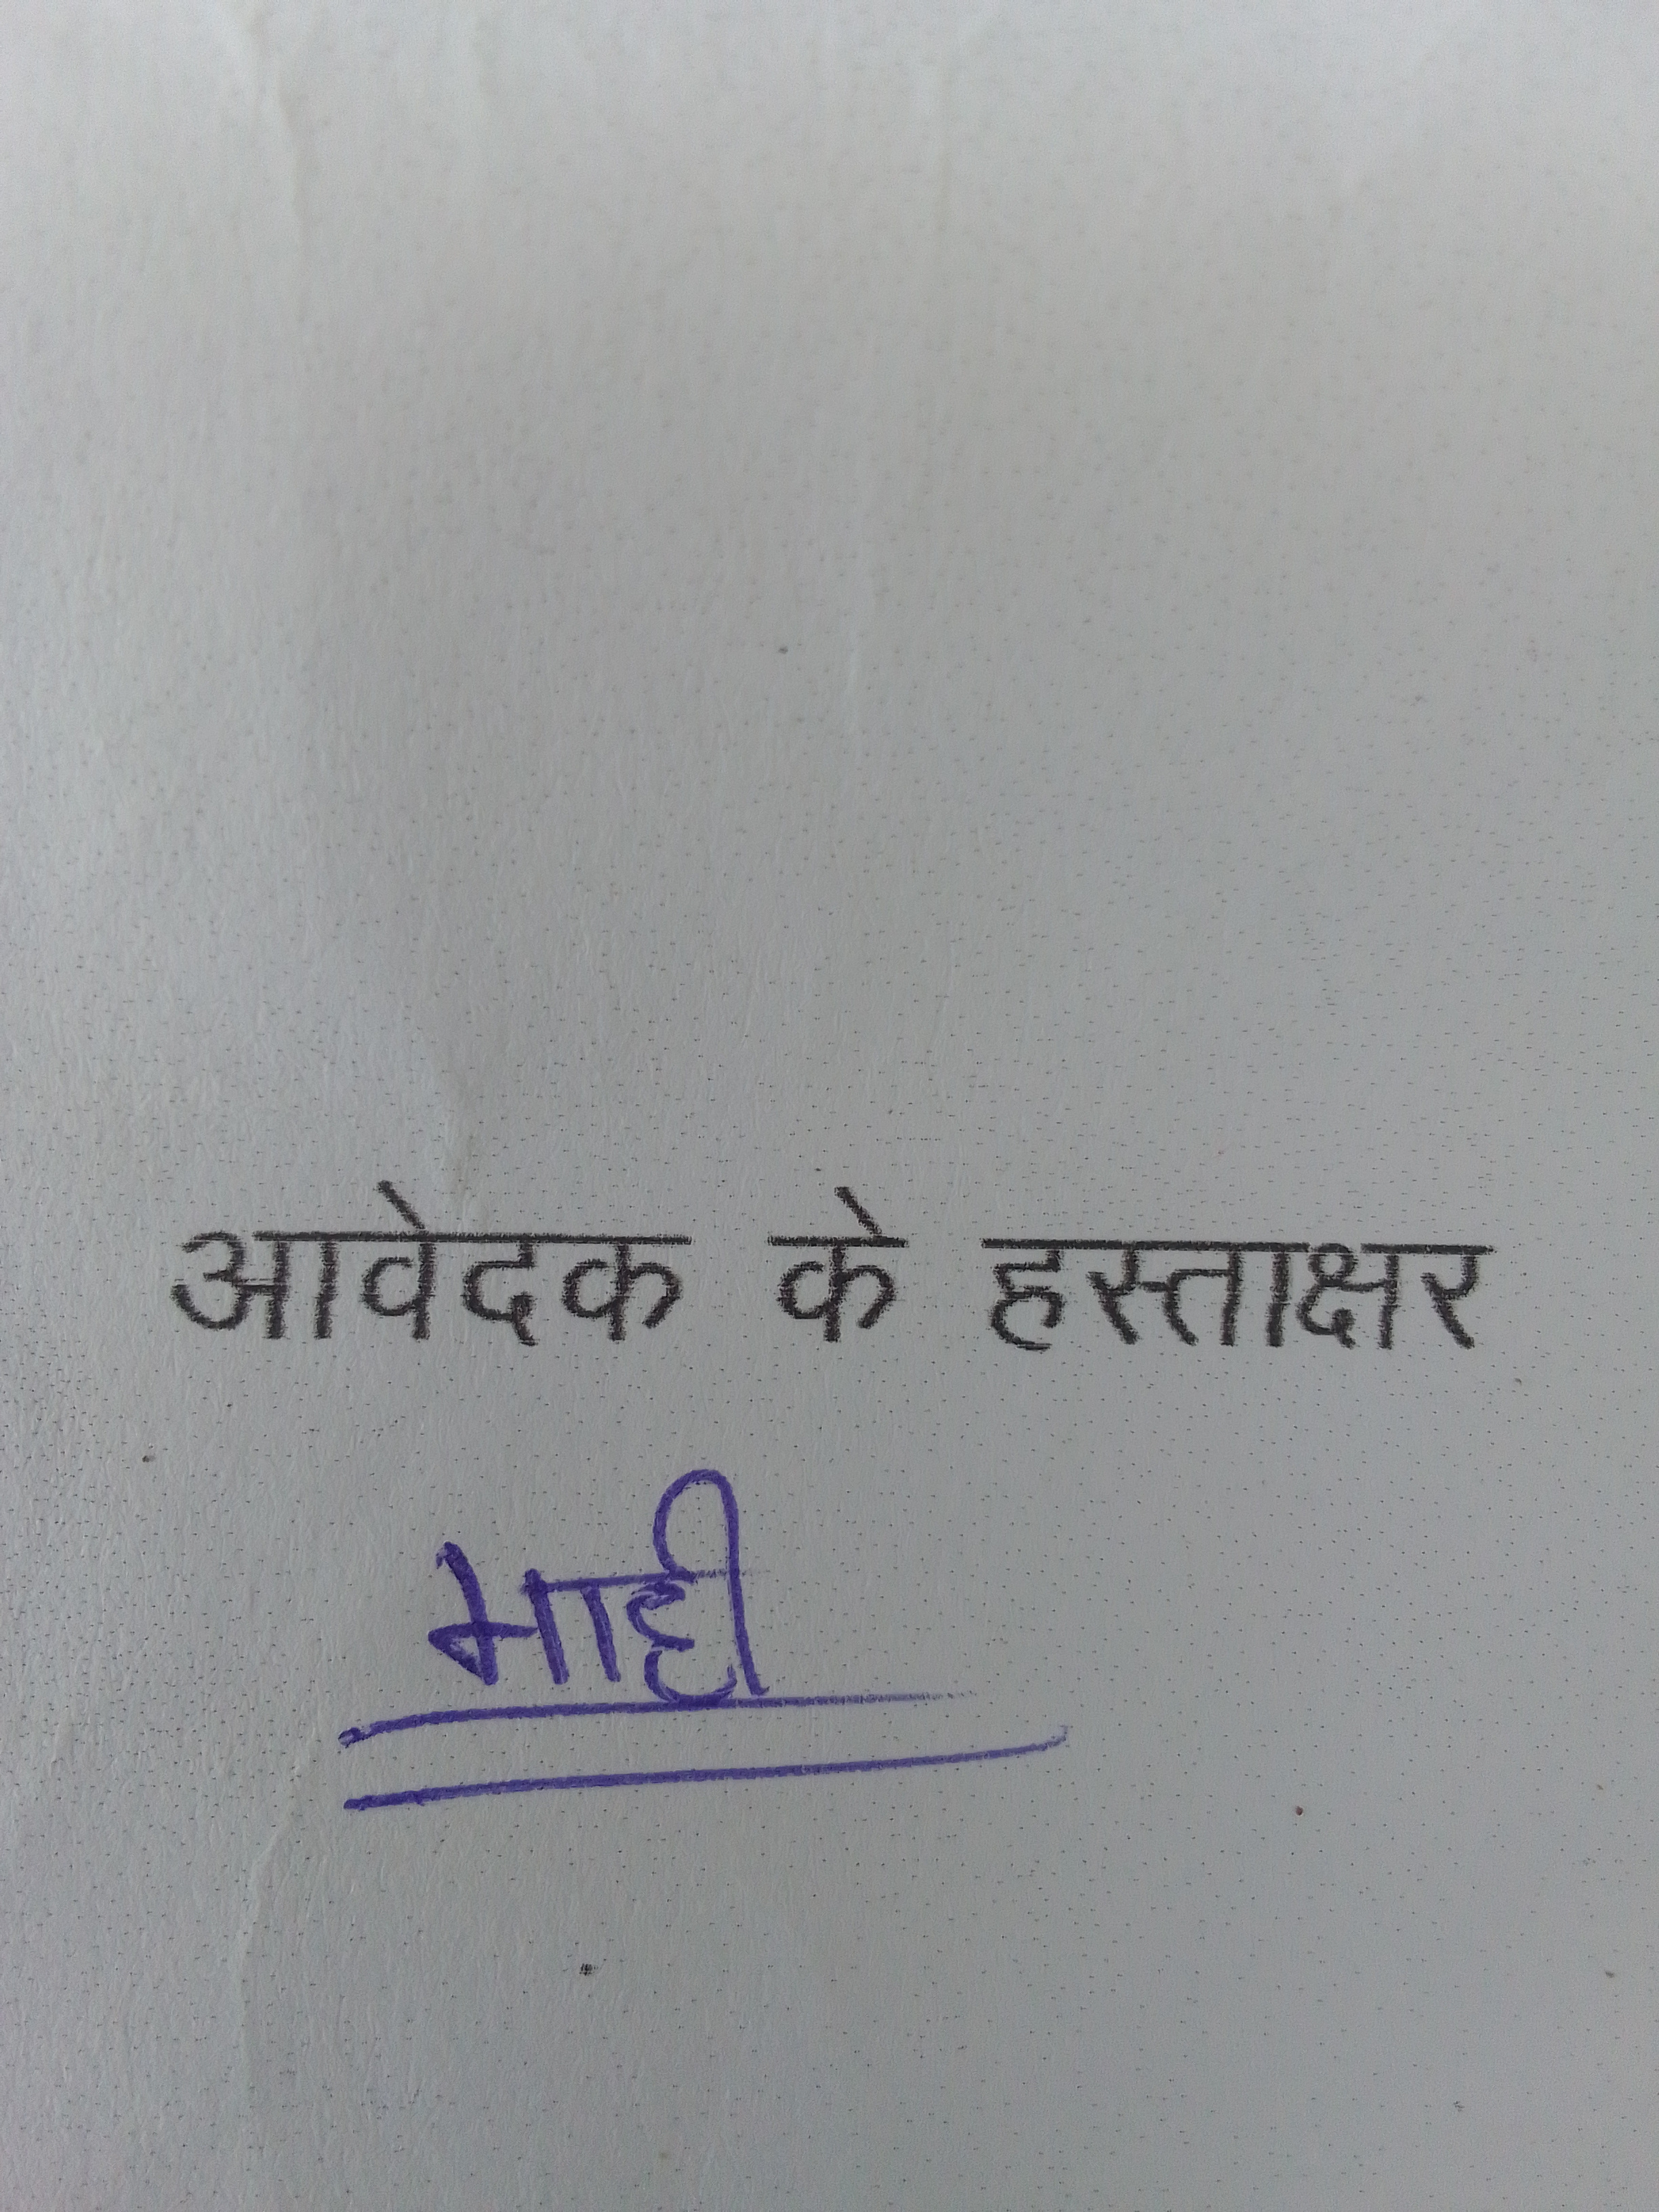 आवेदक के हस्ताक्षर
माही